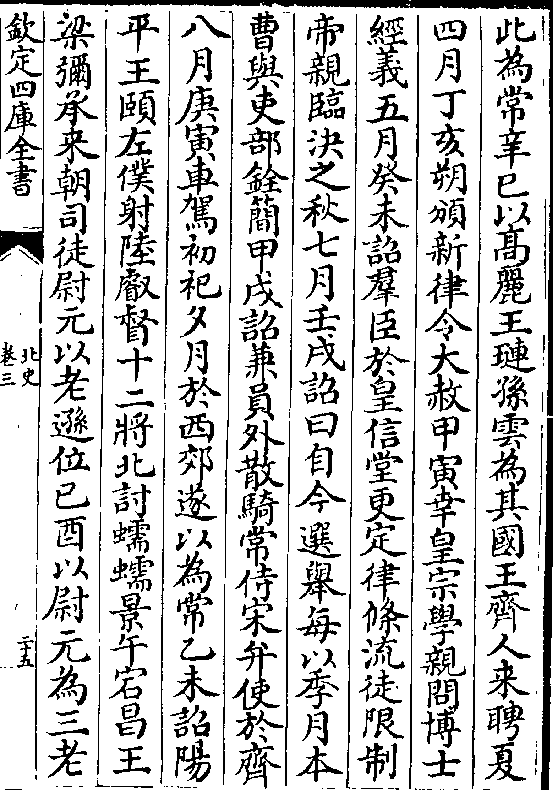 此為常辛巳以高麗王璉孫雲為其國王齊人来聘夏
四月丁亥朔頒新律令大赦甲寅幸皇宗學親問博士
經義五月癸未詔羣臣於皇信堂更定律條流徒限制
帝親臨決之秋七月壬戌詔曰自今選舉每以季月本
曹與吏部銓簡甲戌詔兼員外散騎常侍宋弁使於齊
八月庚寅車駕初祀夕月於西郊遂以為常乙未詔陽
平王頤左僕射陸叡督十二將北討蠕蠕景午宕昌王
梁彌承来朝司徒尉元以老遜位已酉以尉元為三老
欽定四庫全書
北史
卷三
二十五